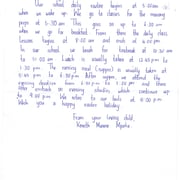 Our school daily routine begins at 5:00am
when we wake up. We go to classes for the morning
preps at 5:30 am. This goes on up to 6:30 am
when we go for breakfast. From there the daily class
lessons begins at 8:00 am and ends at
In our school we break for tea break at 10:30 am
to 11:00 am. Lunch is usually taken at 12:45 pm to
1:30 pm. The evening meal (supper) is usually taken at
6 pm to 6:30 pm. After supper, we attend the
evening devotion from 6:30 pm to 7:00 pm and then
later embark on evening studies which continue up
to 9:00 pm. We later retire to our beds at 10:00 pm
Wish you a happy easter holiday.
From your loving child,